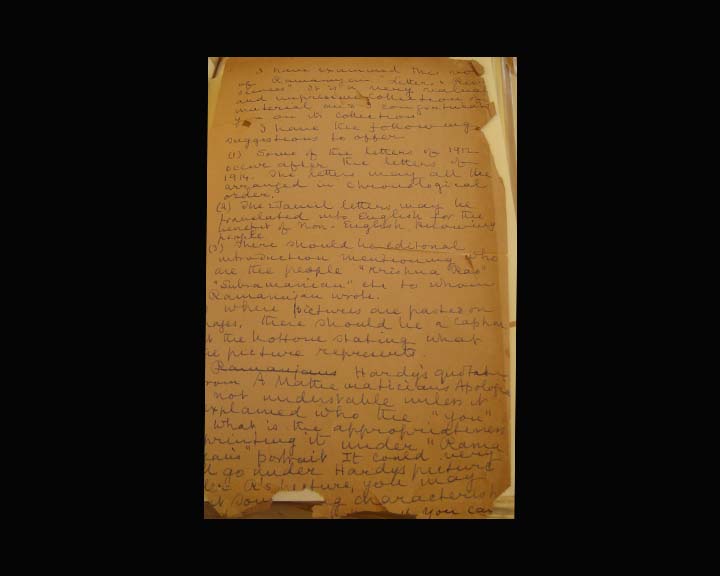 I have examined this
of Ramanujan Letters &
It is a very
and impressive collection of
material and I congratulate
you on its collection"
I have the following
suggestions to offer
(1) Some of the letters of 1912
occur after the letters of
1914. The letters may all be
arranged in chronological
order.
(2) The Tamil letters may be
translated into English for the
benefit of Non-English knowing
people
(3) There should be editorial
introduction mentioning who
are the people "Krishna Rao"
"Subramanian" etc to whom
Ramanujan wrote.
Where pictures are pasted on
pages, there should be a caption
at the bottom stating what
the picture represents
Ramanujans Hardy's quotation
from A Mathematicians Apology
not understable unless it
explained who the "you"
What is the appropriateness
printing it under "Rama
portrait It could very
go under Hardys picture
R's picture, you may
characterist
you can